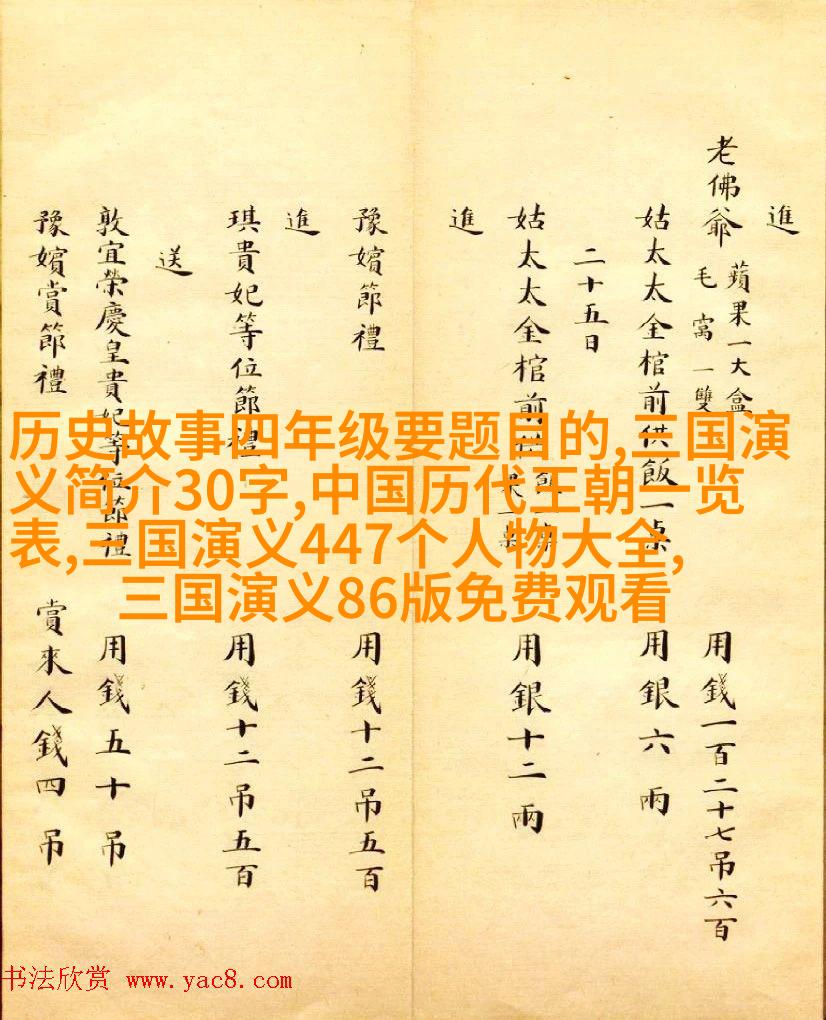 進
老佛爺 蘋果一大盒 毛窩一雙 用錢一百二十七吊六百
姑太太金棺前供飯一桌 用銀六兩
二十五日
姑太太金棺前 用銀十二兩
進
豫嬪節禮 用錢十二吊五百
進
琪貴妃等位節禮 用錢十二吊五百
送
敦宜榮慶皇貴妃等位節禮 用錢五十吊
豫嬪賞節禮 賞來人錢四吊
历史故事四年级要题目的,三国演
义简介30字,中国历代王朝一览
表,三国演义447个人物大全,
三国演义86版免费观看
书法欣赏 www.yac8.com